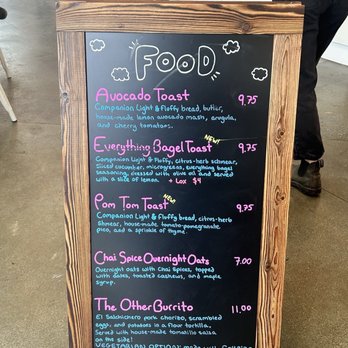 FOOD
Avocado Toast 9.75
Companion Light & Fluffy bread, butter,
house-made lemon avocado mash, arugula,
and cherry tomatoes.
NEW!
Everything Bagel Toast 9.75
Companion Light & Fluffy, citrus-herb schmear,
sliced cucumber, microgreens, everything bagel
seasoning, dressed with olive oil and served
with a slice of lemon. + Lox $4
NEW!
Pom Tom Toast 9.75
Companion Light & Fluffy bread, citrus-herb
schmear, house-made tomato-pomegranate
pico, and a sprinkle of thyme.
Chai Spice Overnight Oats 7.00
Overnight oats with Chai Spices, topped
with dates, toasted cashews, and maple
syrup.
The Other Burrito 11.00
El Salchichero pork chorizo, scrambled
eggs, and potatoes in a flour tortilla.
Served with house-made tomatillo salsa
on the side!
VEGETARIAN OPTION: made with